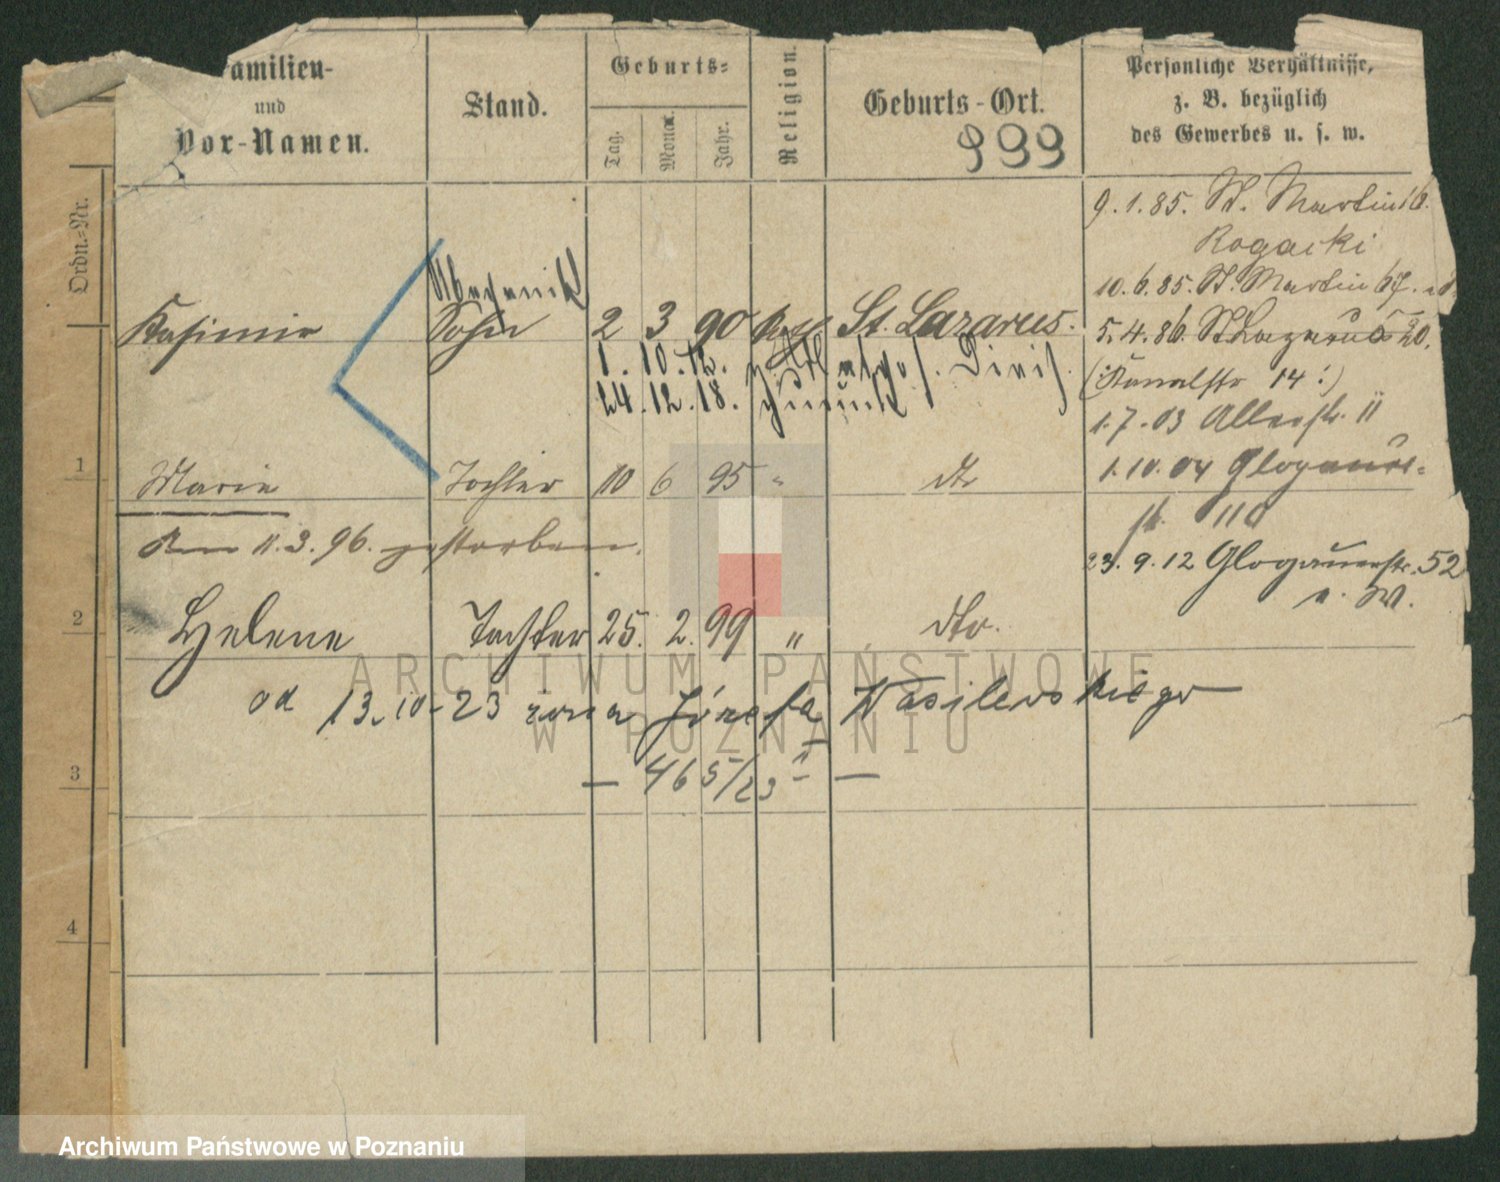 Familien-
und
Vor-Namen.
Stand.
Geburts-
Tag.
Monat.
Jahr.
Religion.
Geburts-Ort.
999
Persönliche Verhältnisse,
z. B. bezüglich
des Gewerbes u. s. w.
Ordn.-Nr.
9.1.85. St. Martin 16.
Rogacki
10.6.85. St. Martin 67.
Mechanik
Kasimir Sohn 2 3 90 kath St. Lazarus.
5.4.86. St Lazarus 20.
1. 10. 12.
(Kanalstr 14!)
24. 12. 18. zurück
1.7.03 Allerstr. 11
1 Marie Tochter 10 6 95 " dto
1.10.04 Glogauer-
str. 110
Am 11.3.96. gestorben.
23.9.12 Glogauerstr. 52
e. W.
2 Helene Tochter 25. 2. 99 " dto.
od 13.10-23 żona Józefa Wasilewskiego
— 465/23 —
3
4
ARCHIWUM PAŃSTWOWE
W POZNANIU
Archiwum Państwowe w Poznaniu